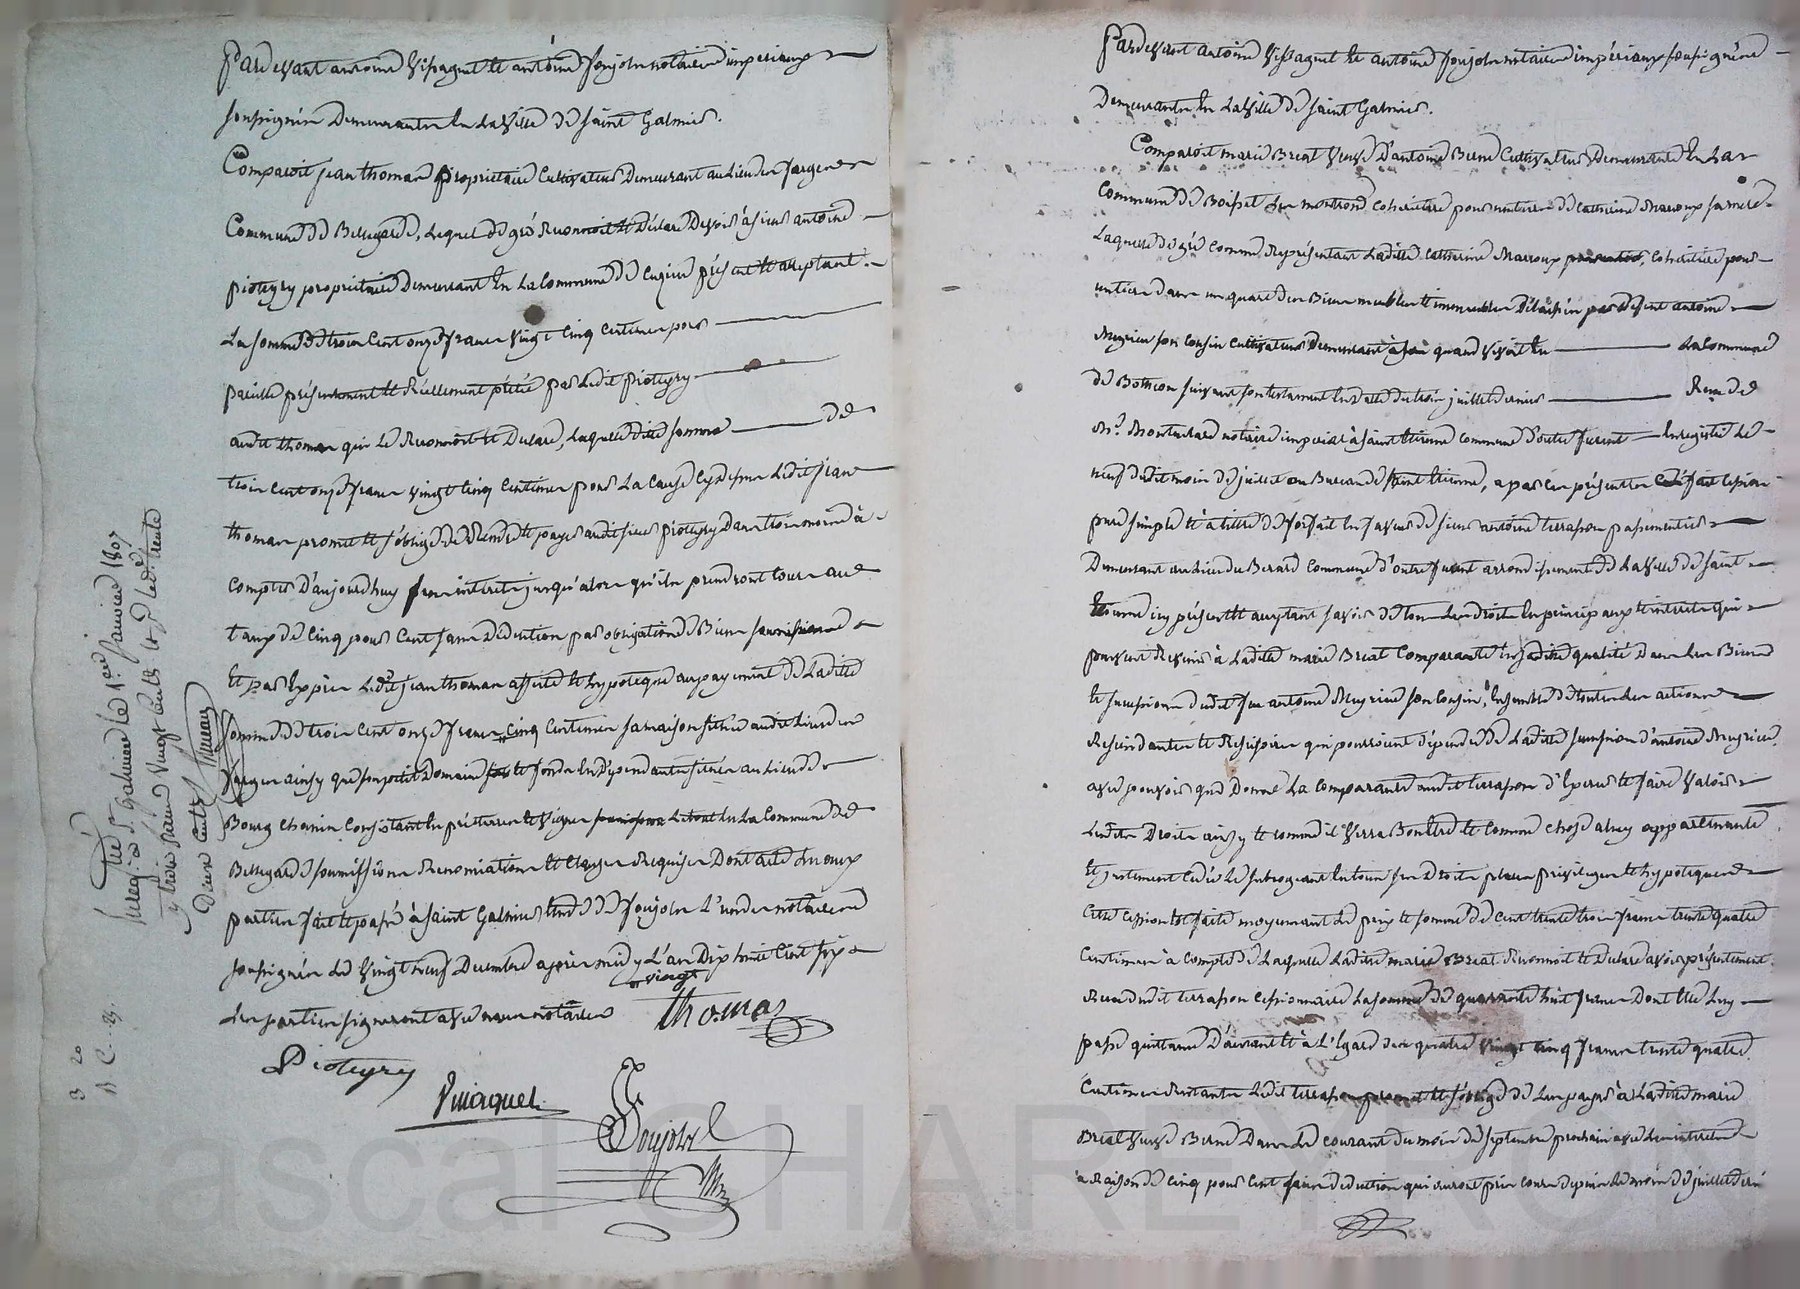 Pardevant antoine Vissaguet et antoine Soujols notaires imperiaux
soussignés Demeurants en La Ville de Saint Galmier.
Comparoit jean thomas proprietaire Cultivateur Demeurant au Lieu des
Commune de Bellegarde, Lequel de gré Reconnoit et Déclare Devoir à sieur antoine
pioteyry proprietaire Demeurant en La Commune de Cuzieu présent et acceptant
La somme de trois Cent onze francs vingt Cinq Centimes pour
pareille présentement et Réellement prêtée par Ledit pioteyry
audit thomas qui Le Reconnoit et Declare, Laquelle dite somme de
trois Cent onze francs vingt Cinq Centimes pour La Cause cy dessus Ledit jean
thomas promet et s'oblige de Rendre et payer audit sieur pioteyry Dans trois mois à
Compter D'aujourd'huy sans interets jusqu'alors qu'ils prendront Cours au
taux de Cinq pour Cent sans Deduction par obligation de Biens
et par Exprès Ledit jean thomas affecte et hypoteque au payement de Ladite
somme de trois Cent onze francs Cinq Centimes sa maison située audit Lieu des
ainsy que son petit Domaine et fonds En Dépendants situés au Lieu de
Bourg Chemin Consistant En prés terres et vignes Le tout En La Commune de
Bellegarde soumissions Renonciations et Clauses Requises Dont acte Lu aux
parties fait et passé à Saint Galmier Etude de Soujols L'un des notaires
soussignés Le Vingt neuf Decembre après midy L'an Dix huit Cent six
vingt
Les parties signeront avec nous notaires
thomas
Pioteyry
Vissaguet
Soujols
Enreg. à St Galmier le 1er Janvier 1807
trois francs Vingt Cents
Dix Cents
3 20
Pardevant antoine Vissaguet et antoine Soujols notaires impériaux soussignés
Demeurants En La Ville de Saint Galmier.
Comparoit marie Breat Veuve D'antoine Berne Cultivateur Demeurante En La
Commune de Boisset Les montrond cohéritiere pour un tiers de Catherine Marcoux sa mere
Laquelle de gré comme Représentant Ladite Catherine Marcoux, cohéritiere pour
un tiers dans un quart des Biens meubles et immeubles Délaissés par Defunt antoine
Meyrieu son Cousin Cultivateur Demeurant quand vivoit En La Commune
de Bothéon suivant son testament En Datte du trois juillet dernier Reçu de
Me. notaire imperial à Saint Etienne Commune D'outre furent Enregistré Le
neuf dudit mois de juillet au Bureau de Saint Etienne, a par Ces présentes fait Cession
pure simple et à titre de forfait En faveur de sieur antoine terrasson passementier
Demeurant au Lieu du Berard Commune d'outre furent arrondissement de La Ville de Saint
Etienne icy présent et acceptant savoir de tous Les droits En principaux et interets qui
peuvent Revenir à Ladite marie Breat Comparante En sadite qualité Dans Les Biens
et succession dudit feu antoine Meyrieu son Cousin, Ensemble de toutes Les actions
Rescindantes et Rescisoires qui pourroient dépendre de Ladite succession d'antoine Meyrieu,
avec pouvoir que Donne La Comparante audit terrasson d'Exercer et faire Valoir
Lesdits Droits ainsy et comme il Verra Bon Etre et Comme chose à luy appartenante
et justement Cédée Le subrogeant En tous ses Droits places privileges et hypoteques
Cette Cession Est faite moyennant Le prix et somme de Cent trente trois francs trente quatre
Centimes à Compte de Laquelle Ladite marie Breat Reconnoit et Declare avoir présentement
Reçu dudit terrasson Cessionnaire La somme de quarante huit francs Dont Elle Luy
passe quittance D'autant et à L'égard des quatre vingt cinq francs trente quatre
Centimes Restants Ledit terrasson promet et s'oblige de Les payer à Ladite marie
Breat Veuve Berne Dans Le Courant du mois de septembre prochain avec Les interets
à Raison de Cinq pour Cent sans deduction qui auront pris Cours depuis Le mois de juillet dernier
Pascal CHAREYRON